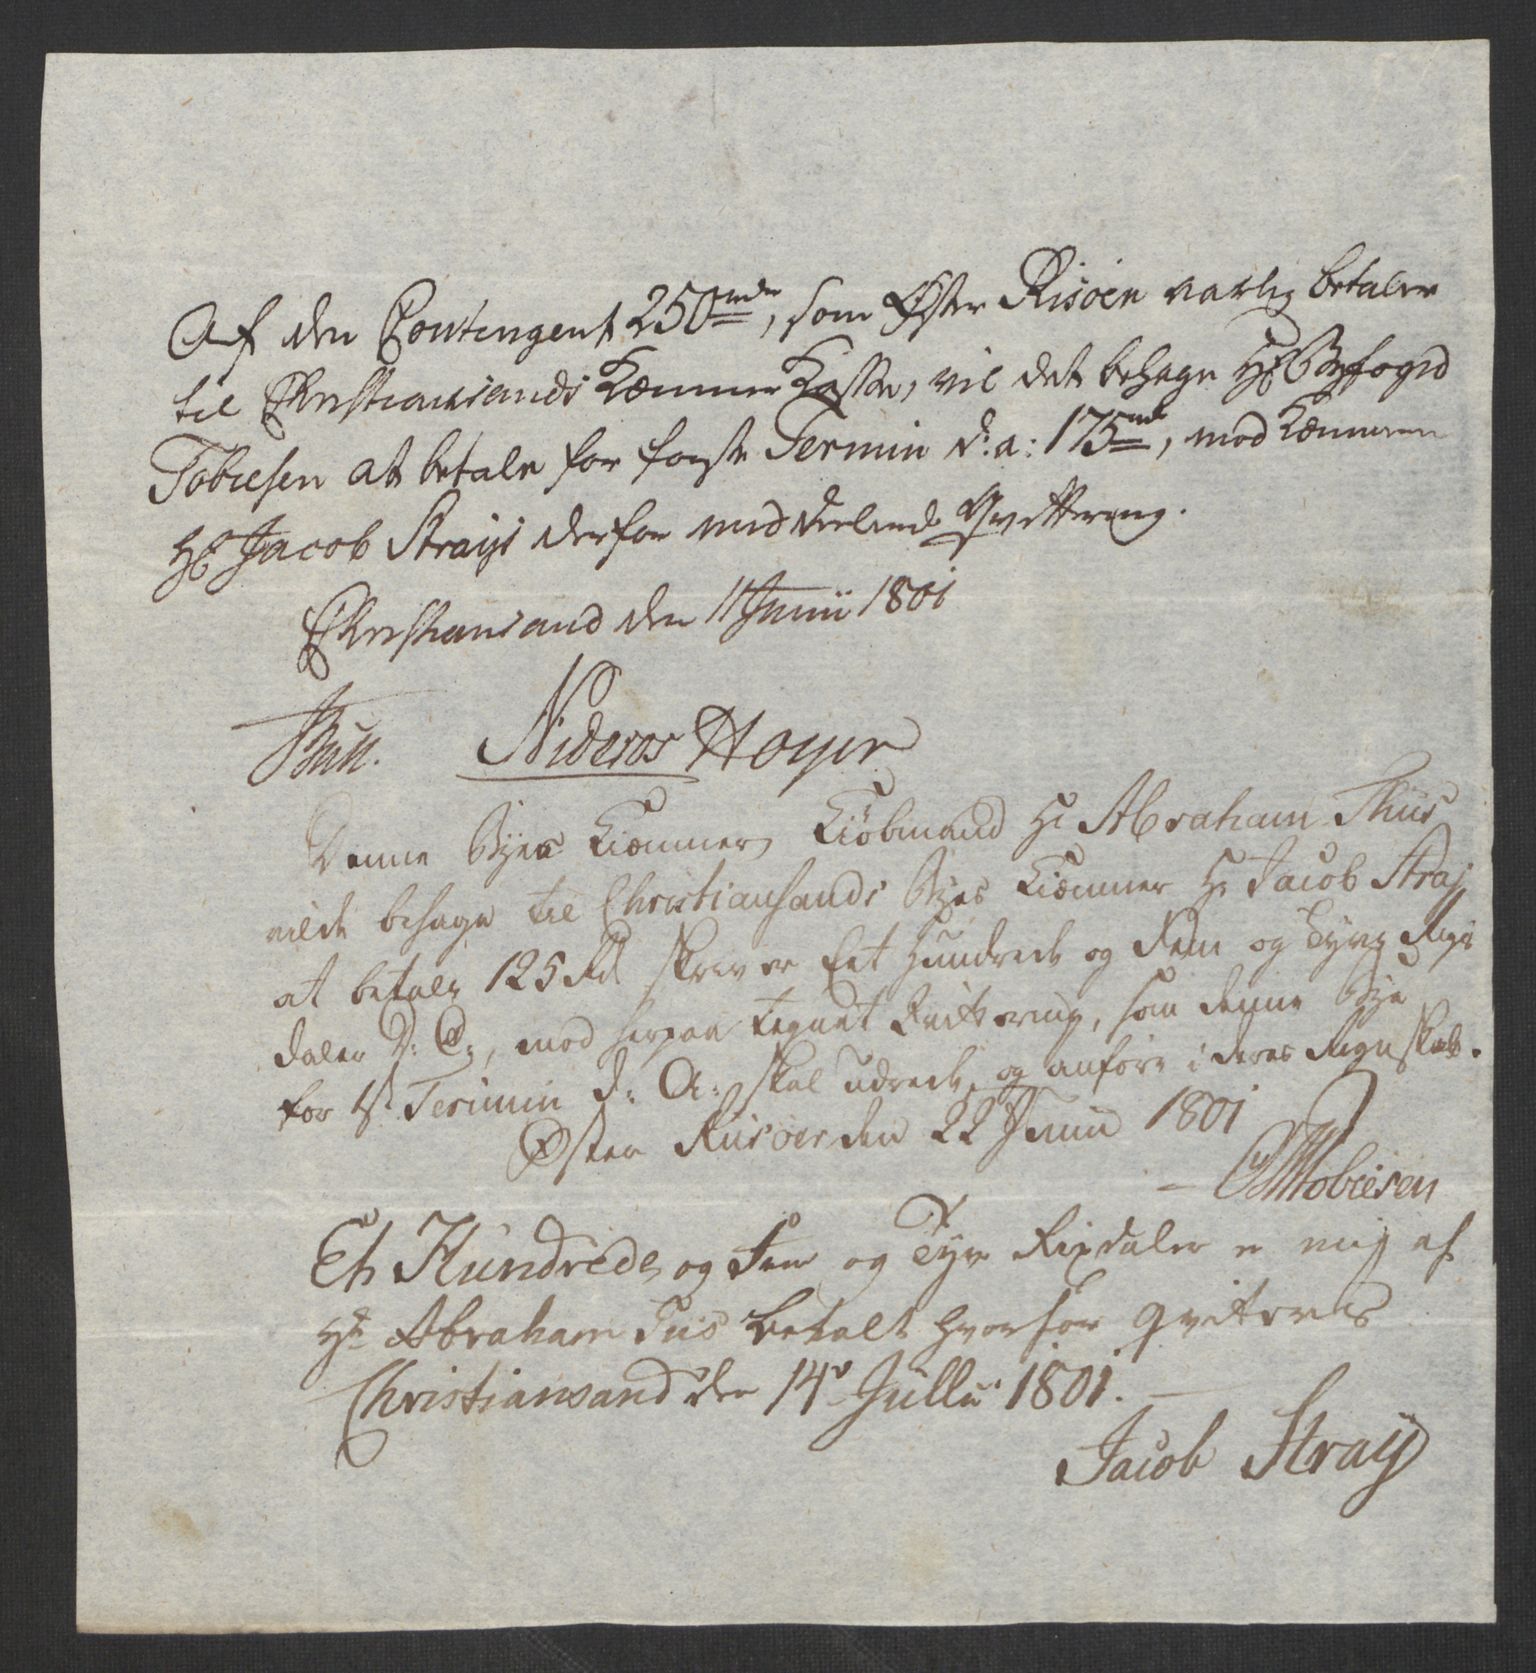 Af den Contingent 250 rdr, som Øster Risöen aarlig betaler
til Christiansands Kæmner Kasse, vil det behage Hr Byfoged
Tobiesen at betale for første Termin d: a: 125 rdr, mod Kæmneren
Hr Jacob Strays derfor meddeelende Qvittering.
Christiansand den 11 Junii 1801
Bull. Nideros Hoyer
Denne Byes Kiæmner Kiöbmand Hr Abraham Thiis
vilde behage til Christiansands Byes Kiæmner Hr Jacob Stray
at betale 125 Rd skriver Eet Hundrede og Fem og Tyve Rigs
daler D: C:, mod herpaa tegnet Qvittering, som denne Bye
for 1st Termin d: A: skal udrede, og anföre i deres Regnskab.
Öster Riisöer den 22 Junii 1801
Tobiesen
Et Hundrede og Fem og Tyve Rixdaler er mig af
Hr Abraham Tiis betalt hvorfor qvitteres
Christiansand den 14de Jullii 1801.
Jacob Stray